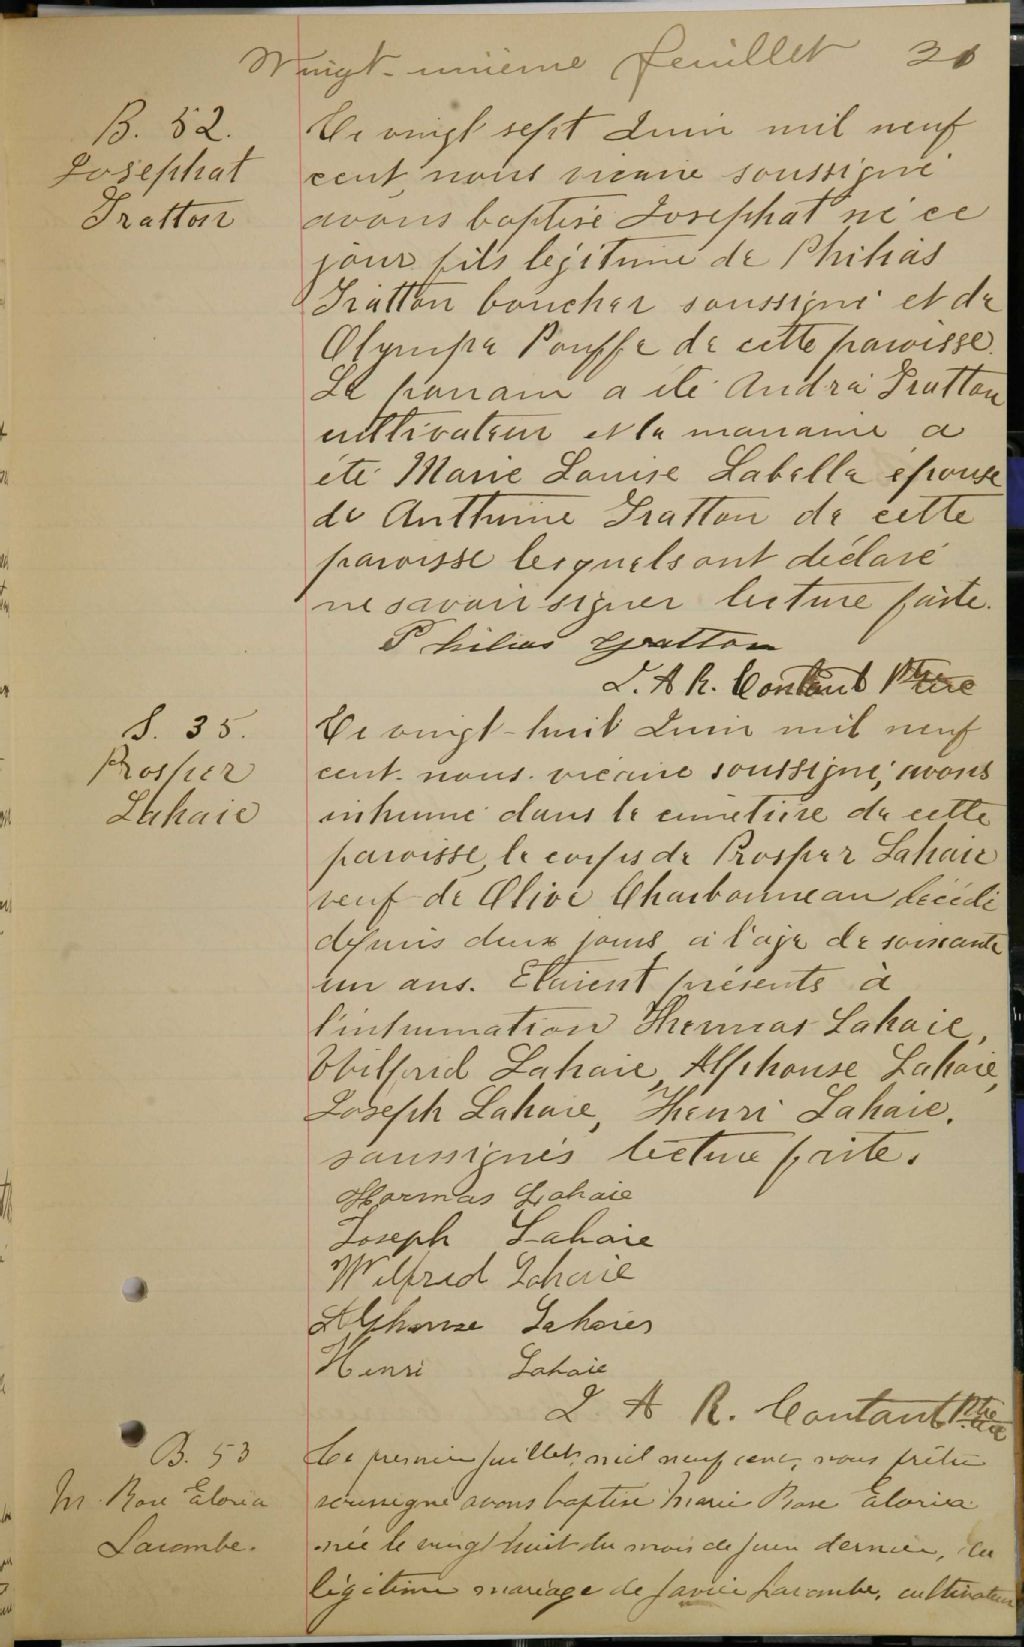 Vingt-unième feuillet 31
B. 52.
Josephat
Gratton
Le vingt sept Juin mil neuf
cent, nous vicaire soussigné
avons baptisé Josephat né ce
jour fils légitime de Philias
Gratton boucher soussigné et de
Olympe Pouffe de cette paroisse.
Le parrain a été André Gratton
cultivateur et la marraine a
été Marie Louise Labelle épouse
de Anthime Gratton de cette
paroisse lesquels ont déclaré
ne savoir signer lecture faite.
Philias Gratton
J. A R. Contant Ptre vic
S. 35.
Prosper
Lahaie
Le vingt-huit Juin mil neuf
cent. nous. vicaire soussigné, avons
inhumé dans le cimetière de cette
paroisse, le corps de Prosper Lahaie
veuf de Olive Charbonneau décédé
depuis deux jours à l'age de soixante
un ans. Etaient présents à
l'inhumation Hermas Lahaie,
Wilfrid Lahaie, Alphonse Lahaie,
Joseph Lahaie, Henri Lahaie.
soussignés lecture faite.
Hormas Lahaie
Joseph Lahaie
Wilfred Lahaie
Alphonse Lahaies
Henri Lahaie
J A R. Contant Ptre vic
B. 53
M. Rose Eloria
Lacombe.
Le premier Juillet, mil neuf cent, nous prêtre
soussigné avons baptisé Marie Rose Eloria
née le vingt huit du mois de Juin dernier, du
légitime mariage de Javier Lacombe, cultivateur